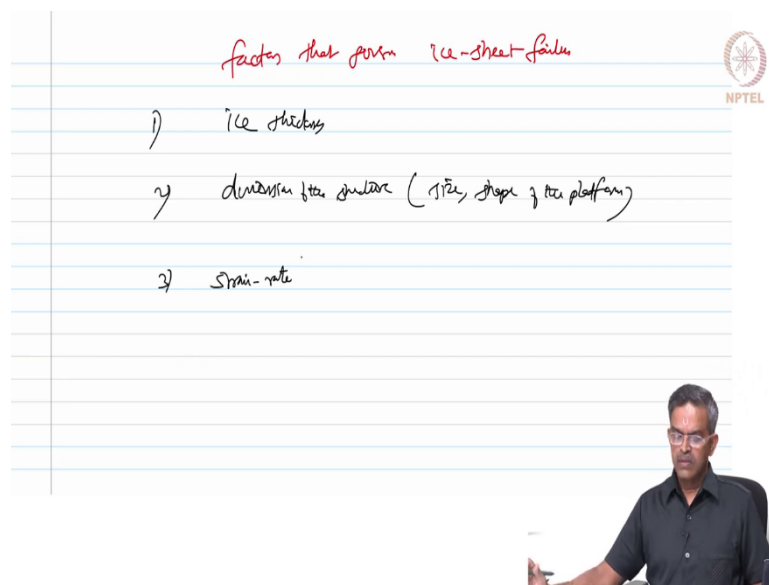 factors that govern ice-sheet failure
NPTEL
1) ice thickness
2) dimension of the structure (size, shape of the platform)
3) strain-rate